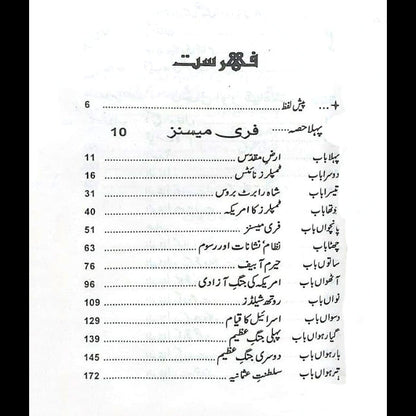 فہرست
+... پیش لفظ ... 6
پہلا حصہ ... فری میسنز 10
پہلا باب ارضِ مقدس ... 11
دوسرا باب ٹمپلرز نائٹس ... 16
تیسرا باب شاہ رابرٹ بروس ... 31
چوتھا باب ٹمپلرز کا امریکہ ... 40
پانچواں باب فری میسنز ... 51
چھٹا باب نظام' نشانات اور رسوم ... 63
ساتواں باب حیرم آبیف ... 76
آٹھواں باب امریکہ کی جنگِ آزادی ... 96
نواں باب روتھ شیلڈز ... 109
دسواں باب اسرائیل کا قیام ... 129
گیارہواں باب پہلی جنگِ عظیم ... 139
بارہواں باب دوسری جنگِ عظیم ... 145
تیرہواں باب سلطنتِ عثمانیہ ... 172